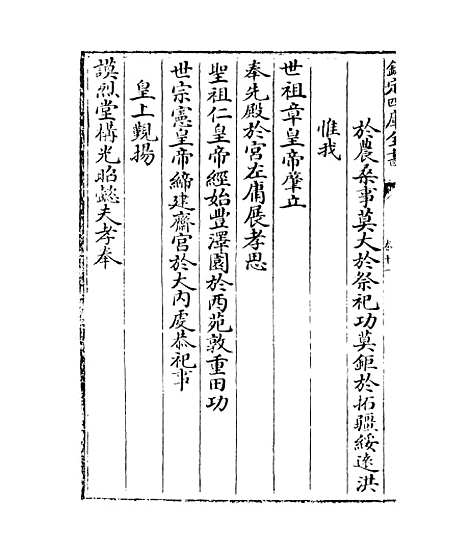 欽定四庫全書
卷十一
於農桑事莫大於祭祀功莫鉅於拓疆綏遠洪
惟我
世祖章皇帝肇立
奉先殿於宮左庸展孝思
聖祖仁皇帝經始豐澤園於西苑敦重田功
世宗憲皇帝締建齋宮於大內處恭祀事
皇上覲揚
謨烈堂構光昭懿夫孝奉